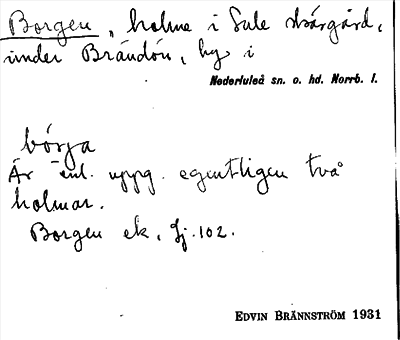 Borgen, holme i Lule skärgård,
under Brändön, by i
Nederluleå sn. o. hd. Norrb. l.
bórja
Är enl. uppg. egentligen två
holmar.
Borgen ek. Lj. 102.
EDVIN BRÄNNSTRÖM 1931